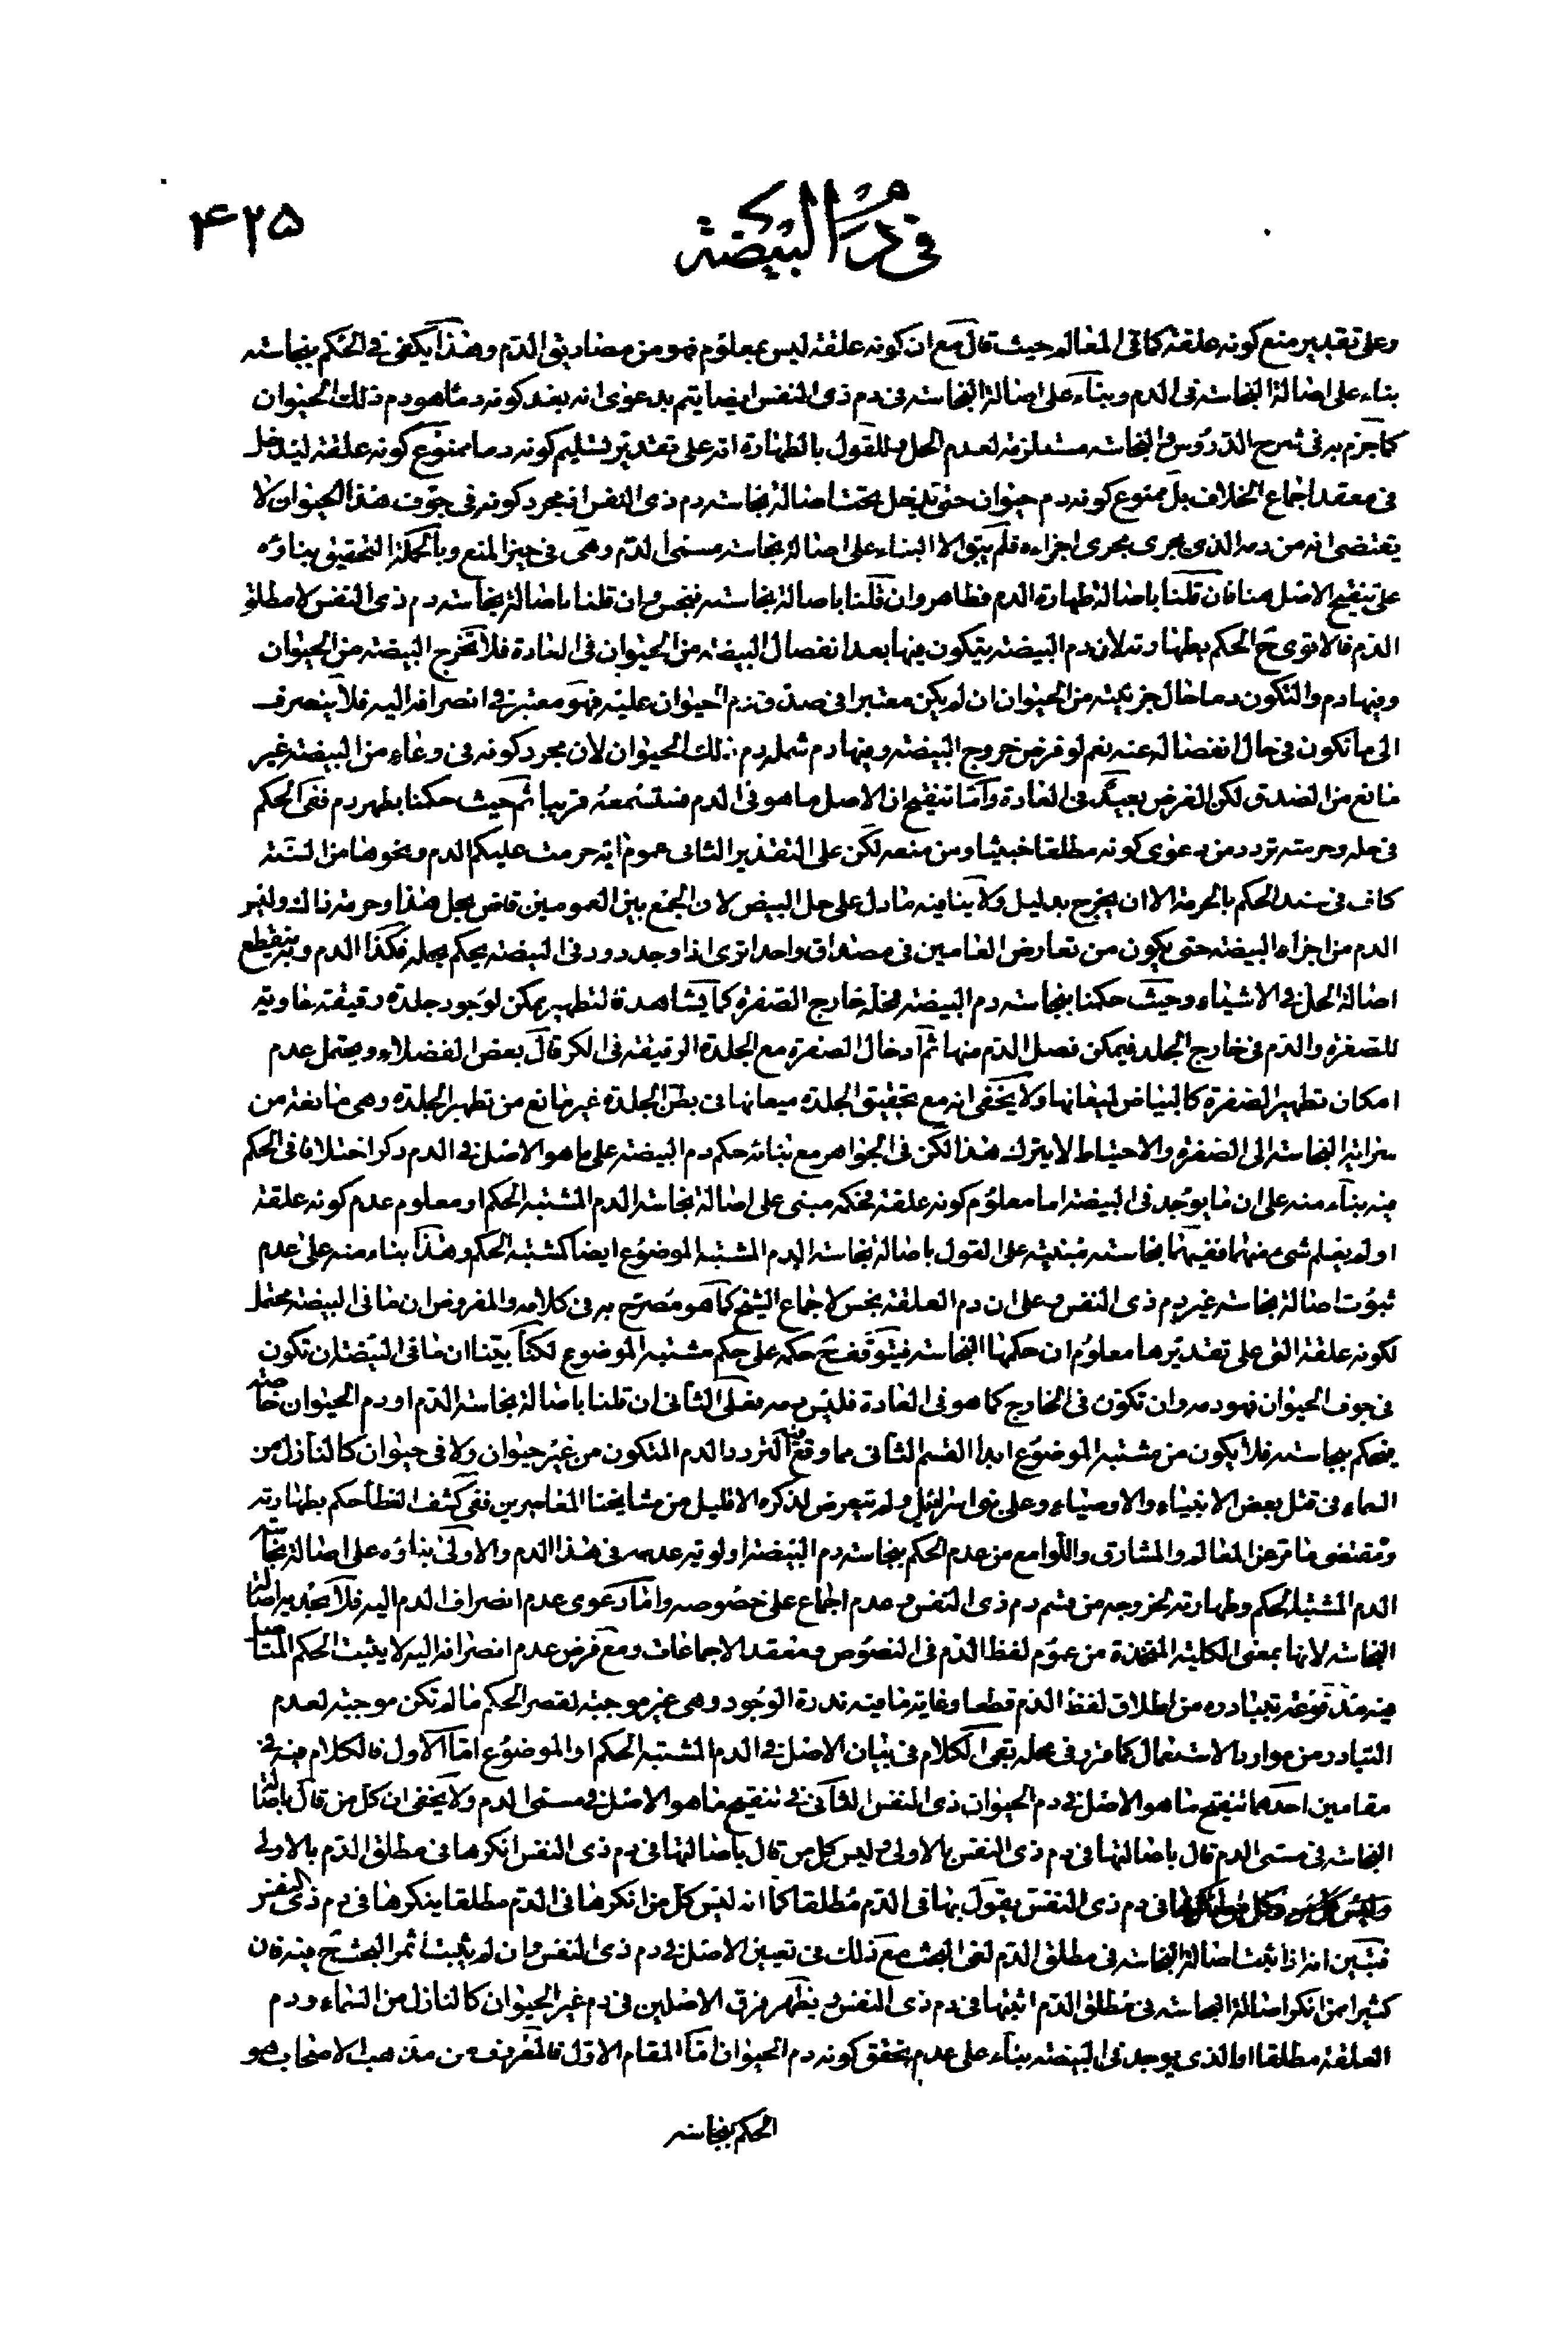 في دم البيضة
۴۲۵
وعلى تقدير منع كونه علقة كما في المعالم حيث قال مع ان كونه علقة ليس بمعلوم فهو من مصاديق الدم وهذا يكفي في الحكم بنجاسته
بناء على اصالة النجاسة في الدم وبناء على اصالة النجاسة في دم ذي النفس ايضا يتم بدعوى انه بعد كونه دما هو دم ذلك الحيوان
كما جزم به في شرح الدروس والنجاسة مستلزمة لعدم الحل وللقول بالطهارة انه على تقدير تسليم كونه دما ممنوع كونه علقة ليدخل
في معقد اجماع الخلاف بل ممنوع كونه دم حيوان حتى تدخل تحت اصالة نجاسة دم ذي النفس اذ مجرد كونه في جوف هذا الحيوان لا
يقتضي انه من دمه الذي يجري مجرى اجزاءه فلم يبق الا البناء على اصالة نجاسة مسمى الدم وهي في حيز المنع وبالجملة التحقيق بناؤه
على تنقيح الاصل هنا فان قلنا باصالة طهارة الدم فطاهر وان قلنا باصالة نجاسته فنجس وان قلنا باصالة نجاسة دم ذي النفس لا مطلق
الدم فالاقوى ح الحكم بطهارته لان دم البيضة يتكون فيها بعد انفصال البيضة من الحيوان في العادة فلا تخرج البيضة من الحيوان
وفيها دم والتكون دما حال جزئيته من الحيوان ان لم يكن معتبرا في صدق دم الحيوان عليه فهو معتبر في انصرافه اليه فلا ينصرف
الى ما تكون في حال انفصاله عنه نعم لو فرض خروج البيضة وفيها دم شمله دم ذلك الحيوان لان مجرد كونه في وعاء من البيضة غير
مانع من الصدق لكن الفرض بعيد في العادة واما تنقيح ان الاصل ما هو في الدم فستسمعه قريبا ثم حيث حكمنا بطهر دم ففي الحكم
في حله وحرمته تردد من دعوى كونه مطلقا خبيثا ومن منعه لكن على التقدير الثاني عموم اية حرمت عليكم الدم ونحوها من السنة
كاف في سند الحكم بالحرمة الا ان يخرج بدليل ولا ينافيه ما دل على حل البيض لان الجمع بين العمومين قاض بحل هذا وحرمة ذاك وليس
الدم من اجزاء البيضة حتى يكون من تعارض العامين في مصداق واحد اترى اذا وجد دود في البيضة يحكم بحله فكذا الدم وبه ينقطع
اصالة الحل في الاشياء وحيث حكمنا بنجاسة دم البيضة فمحله خارج الصفرة كما يشاهد لتطهير يمكن لوجود جلدة رقيقة حاوية
للصفرة والدم في خارج الجلد فيمكن فصل الدم منها ثم ادخال الصفرة مع الجلدة الرقيقة في الكر قال بعض الفضلاء ويحتمل عدم
امكان تطهير الصفرة كالبياض لميعانها ولا يخفى انه مع تحقيق الجلدة ميعانها في بطن الجلدة غير مانع من تطهير الجلدة وهي مانعة من
سراية النجاسة الى الصفرة والاحتياط لا يترك هذا لكن في الجواهر مع بنائه حكم دم البيضة على ما هو الاصل في الدم ذكر اختلافا في الحكم
فيه بناء منه على ان ما يوجد في البيضة اما معلوم كونه علقة فحكمه مبني على اصالة نجاسة الدم المشتبه الحكم او معلوم عدم كونه علقة
او لم يعلم شيء منهما ففيهما نجاسته مبنية على القول باصالة نجاسة الدم المشتبه الموضوع ايضا كمشتبه الحكم وهذا بناء منه على عدم
ثبوت اصالة نجاسة غير دم ذي النفس وعلى ان دم العلقة نجس لاجماع الشيخ كما هو مصرح به في كلامه والمفروض ان ما في البيضة محتمل
لكونه علقة التي على تقديرها معلوم ان حكمها النجاسة فيتوقف ح حكمه على حكم مشتبه الموضوع لكنا بينا ان ما في البيضة ان تكون
في جوف الحيوان فهو دمه وان تكون في الخارج كما هو في العادة فليس دمه فعلى الثاني ان قلنا باصالة نجاسة الدم او دم الحيوان خاصة
يحكم بنجاسته فلا يكون من مشتبه الموضوع ابدا القسم الثاني مما وقع فيه التردد الدم المتكون من غير حيوان ولا في حيوان كالنازل من
السماء في قتل بعض الانبياء والاوصياء وعلى بني اسرائيل ولم يتعرض لذكره الا قليل من مشايخنا المعاصرين ففي كشف الغطاء حكم بطهارته
ومقتضى ما مر عن المعالم والمشارق واللوامع من عدم الحكم بنجاسة دم البيضة اولوية عدمه في هذا الدم والاولى بناؤه على اصالة نجاسة
الدم المشتبه الحكم وطهارته لخروجه من قسم دم ذي النفس وعدم اجماع على خصوصه واما دعوى عدم انصراف الدم اليه فلا تجدي اصالة
النجاسة لانها بمعنى الكلية المتخذة من عموم لفظ الدم في النصوص ومعقد الاجماعات ومع فرض عدم انصرافه اليه لا يثبت الحكم المتاصل
فيه مدفوعة بتبادره من اطلاق لفظ الدم قطعا وغاية ما فيه ندرة الوجود وهي غير موجبة لقصر الحكم ما لم تكن موجبة لعدم
التبادر من موارد الاستعمال كما قرر في محله بقي الكلام في بيان الاصل في الدم المشتبه الحكم او الموضوع اما الاول فالكلام فيه في
مقامين احدهما تنقيح ما هو الاصل في دم الحيوان ذي النفس الثاني في تنقيح ما هو الاصل في مسمى الدم ولا يخفى ان كل من قال باصالة
النجاسة في مسمى الدم قال باصالتها في دم ذي النفس بالاولى وليس كل من قال باصالتها في دم ذي النفس انكرها في مطلق الدم بالاولى
في دم ذي النفس يقول بها في الدم مطلقا كما انه ليس كل من انكرها في الدم مطلقا ينكرها في دم ذي النفس
فتبين انه اذا ثبت اصالة النجاسة في مطلق الدم لغى البحث مع ذلك في تعيين الاصل في دم ذي النفس وان لم يثبت اثمر البحث ح فيه فان
كثيرا ممن انكر اصالة النجاسة في مطلق الدم اثبتها في دم ذي النفس ويظهر فرق الاصلين في دم غير الحيوان كالنازل من السماء ودم
العلقة مطلقا او الذي يوجد في البيضة بناء على عدم تحقق كونه دم الحيوان اما المقام الاول فالمعروف من مذهب الاصحاب هو
الحكم بنجاسة